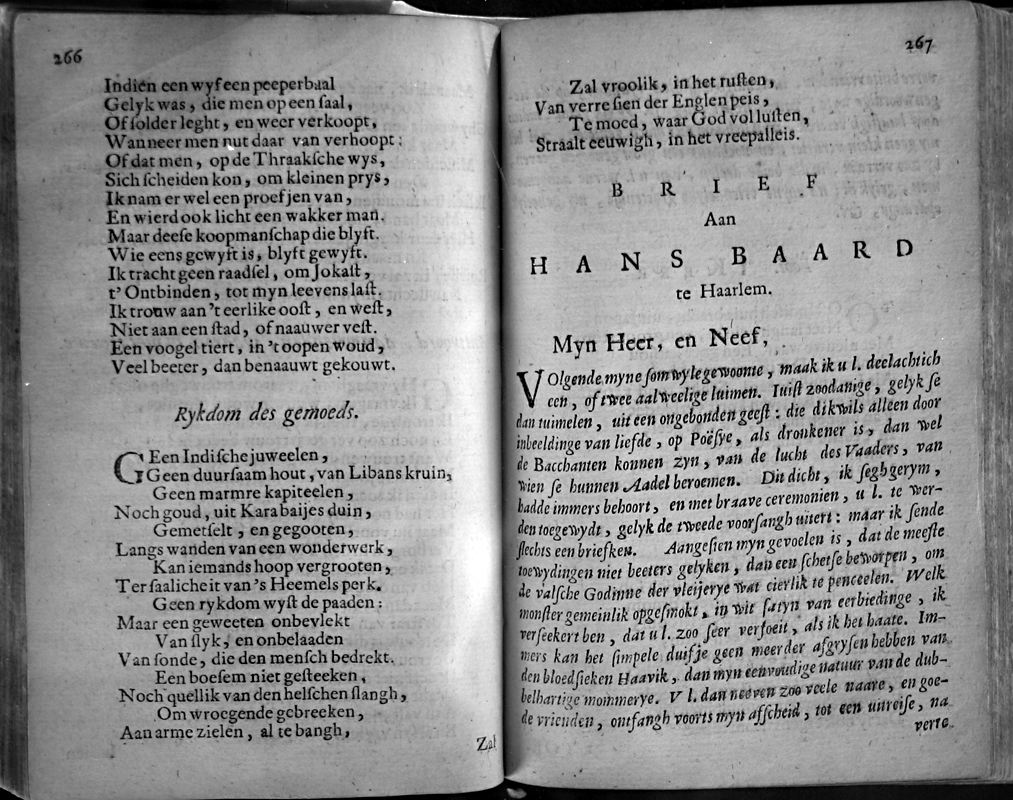 266
Indien een wyf een peeperbaal
Gelyk was, die men op een ſaal,
Of ſolder leght, en weer verkoopt,
Wanneer men nut daar van verhoopt:
Of dat men, op de Thraakſche wys,
Sich ſcheiden kon, om kleinen prys,
Ik nam er wel een proefjen van,
En wierd ook licht een wakker man.
Maar deeſe koopmanſchap die blyft.
Wie eens gewyft is, blyft gewyft.
Ik tracht geen raadſel, om Jokaſt,
t' Ontbinden, tot myn leevens laſt.
Ik trouw aan 't eerlike ooſt, en weſt,
Niet aan een ſtad, of naauwer veſt.
Een voogel tiert, in 't oopen woud,
Veel beeter, dan benaauwt gekouwt.
Rykdom des gemoeds.
GEen Indiſche juweelen,
Geen duurſaam hout, van Libans kruin,
Geen marmre kapiteelen,
Noch goud, uit Karabaijes duin,
Gemetſelt, en gegooten,
Langs wanden van een wonderwerk,
Kan iemands hoop vergrooten,
Ter ſaalicheit van 's Heemels perk.
Geen rykdom wyſt de paaden:
Maar een geweeten onbevlekt
Van ſlyk, en onbelaaden
Van ſonde, die den menſch bedrekt.
Een boeſem niet geſteeken,
Noch quellik van den helſchen ſlangh,
Om wroegende gebreeken,
Aan arme zielen, al te bangh,
Zal
267
Zal vroolik, in het ruſten,
Van verre ſien der Englen peis,
Te moed, waar God vol luſten,
Straalt eeuwigh, in het vreepalleis.
BRIEF
Aan
HANS BAARD
te Haarlem.
Myn Heer, en Neef,
VOlgende myne ſomwyle gewoonte, maak ik u l. deelachtich
een, of twee aalweelige luimen. Iuiſt zoodanige, gelyk ſe
dan tuimelen, uit een ongebonden geeſt: die dikwils alleen door
inbeeldinge van liefde, op Poëſye, als dronkener is, dan wel
de Bacchanten konnen zyn, van de lucht des Vaaders, van
wien ſe hunnen Aadel beroemen. Dit dicht, ik ſegh gerym,
hadde immers behoort, en met braave ceremonien, u l. te wer-
den toegewydt, gelyk de tweede voorſangh uitert: maar ik ſende
ſlechts een briefken. Aangeſien myn gevoelen is, dat de meeſte
toewydingen niet beeters gelyken, dan een ſchetſe beworpen, om
de valſche Godinne der vleijerye wat cierlik te penceelen. Welk
monſter gemeinlik opgeſmokt, in wit ſatyn van eerbiedinge, ik
verſeekert ben, dat u l. zoo ſeer verfoeit, als ik het haate. Im-
mers kan het ſimpele duifje geen meerder afgryſen hebben van
den bloedſieken Haavik, dan myn eenvoudige natuur van de dub-
belhartige mommerye. V l. dan neeven zoo veele naare, en goe-
de vrienden, ontfangh voorts myn affcheid, tot een uitreiſe, na
verre